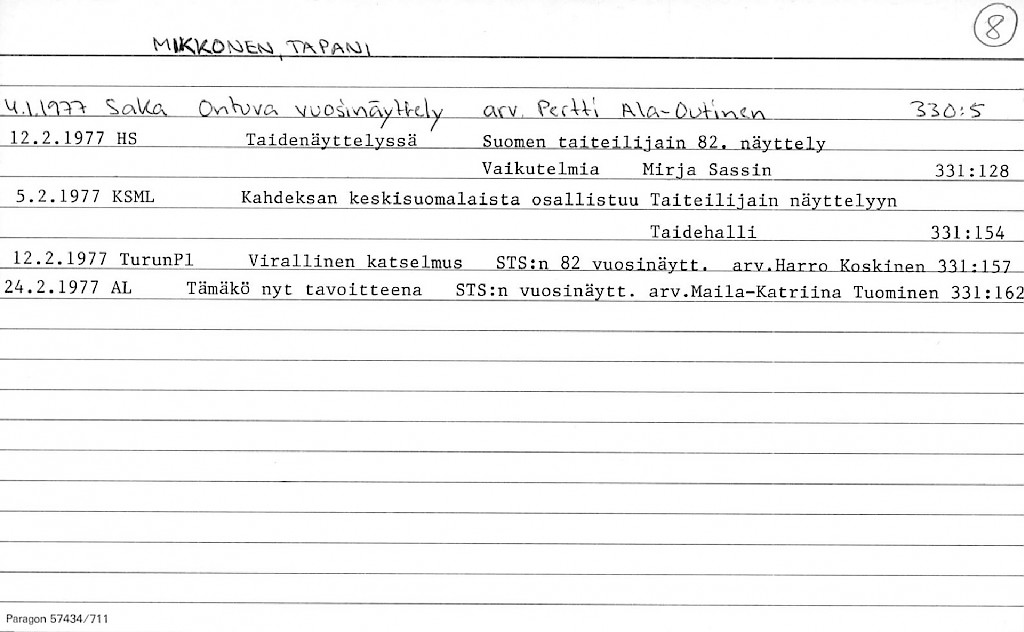 8
MIKKONEN, TAPANI
4.1.1977 Saka Ontuva vuosinäyttely arv. Pertti Ala-Outinen 330:5
12.2.1977 HS Taidenäyttelyssä Suomen taiteilijain 82. näyttely
Vaikutelmia Mirja Sassin 331:128
5.2.1977 KSML Kahdeksan keskisuomalaista osallistuu Taiteilijain näyttelyyn
Taidehalli 331:154
12.2.1977 TurunPl Virallinen katselmus STS:n 82 vuosinäytt. arv.Harro Koskinen 331:157
24.2.1977 AL Tämäkö nyt tavoitteena STS:n vuosinäytt. arv.Maila-Katriina Tuominen 331:162
Paragon 57434/711